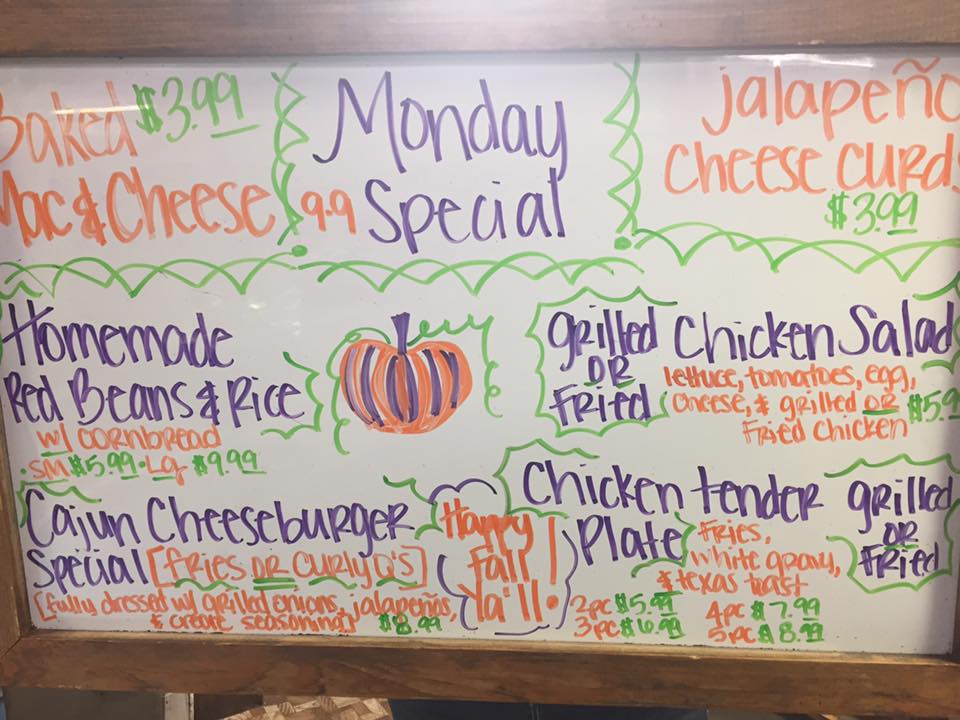 Baked $3.99
Mac & Cheese
Monday
9.9 Special
jalapeño
Cheese Curds
$3.99
Homemade
Red Beans & Rice
w/ cornbread
• sm $5.99 • Lg $9.99
grilled
OR
Fried
Chicken Salad
lettuce, tomatoes, egg,
cheese, & grilled OR
Fried chicken
Cajun Cheeseburger
Special [fries OR Curly Q's]
[fully dressed w/ grilled onions, jalapeños,
& creole seasoning] $8.99
Happy
Fall
Ya'll!
Chicken tender
Plate
grilled
OR
Fried
fries,
white gravy,
& texas toast
2pc $5.99 4pc $7.99
3pc $6.99 5pc $8.99